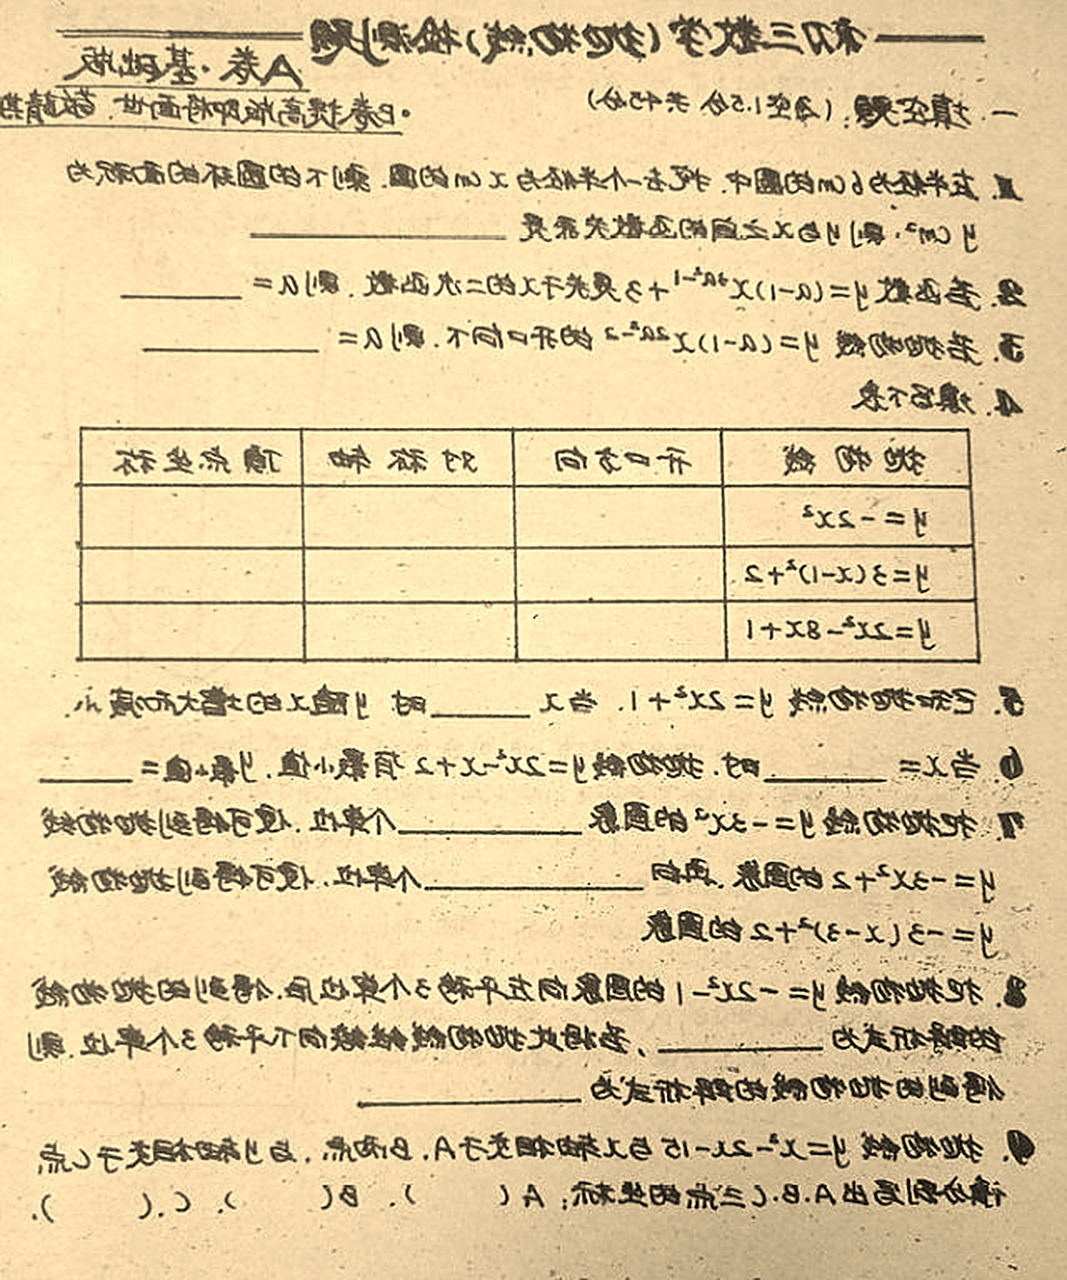 初三数学(抛物线)检测题
A卷·基础版
·B卷提高版即将面世.敬请期
一.填空题:(每空1.5分 共45分)
1. 在半径为6cm的圆中.挖去一个半径为xcm的圆.剩下的圆环的面积为
ycm².则y与x之间的函数关系是
2. 若函数y=(a-1)x³ᵃ²⁻¹+3是关于x的二次函数.则a=
3. 若抛物线y=(a-1)x²ᵃ²⁻² 的开口向下.则a=
4. 填写下表
抛物线 开口方向 对称轴 顶点坐标
y=-2x²
y=3(x-1)²+2
y=2x²-8x+1
5. 已知抛物线y=2x²+1.当x 时 y随x的增大而减小.
6. 当x= 时.抛物线y=2x²-x+2有最小值.y最小值=
7. 把抛物线y=-3x²的图象 个单位.便可得到抛物线
y=-3x²+2的图象.再向 个单位.便可得到抛物线
y=-3(x-3)²+2的图象
8. 把抛物线y=-2x²-1的图象向左平移3个单位后.得到的抛物线
的解析式为 、若再把抛物线继续向下平移3个单位.则
得到的抛物线的解析式为
9. 抛物线y=x²-2x-15与x轴相交于A.B两点.与y轴相交于C点
请分别写出A.B.C三点的坐标: A( ). B( ). C.( ).